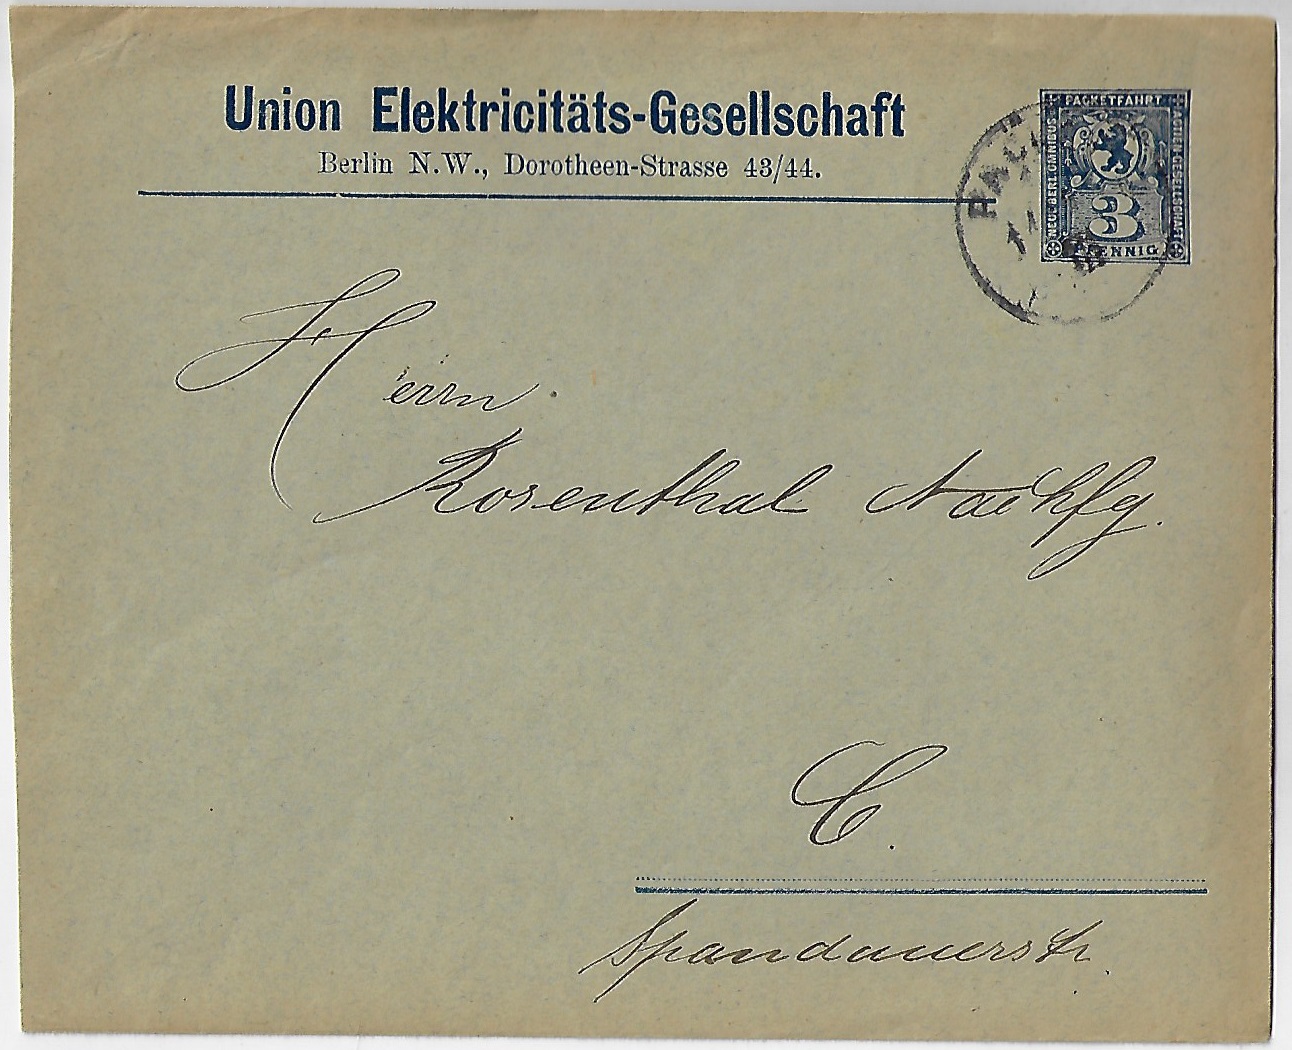 Union Elektricitäts-Gesellschaft
Berlin N.W., Dorotheen-Strasse 43/44.
PACKETFAHRT
NEUE BERL. OMNIBUS
ACTIEN GESELLSCHAFT
3
PFENNIG
Herrn
Rosenthal Nachfg.
C.
Spandauerstr.